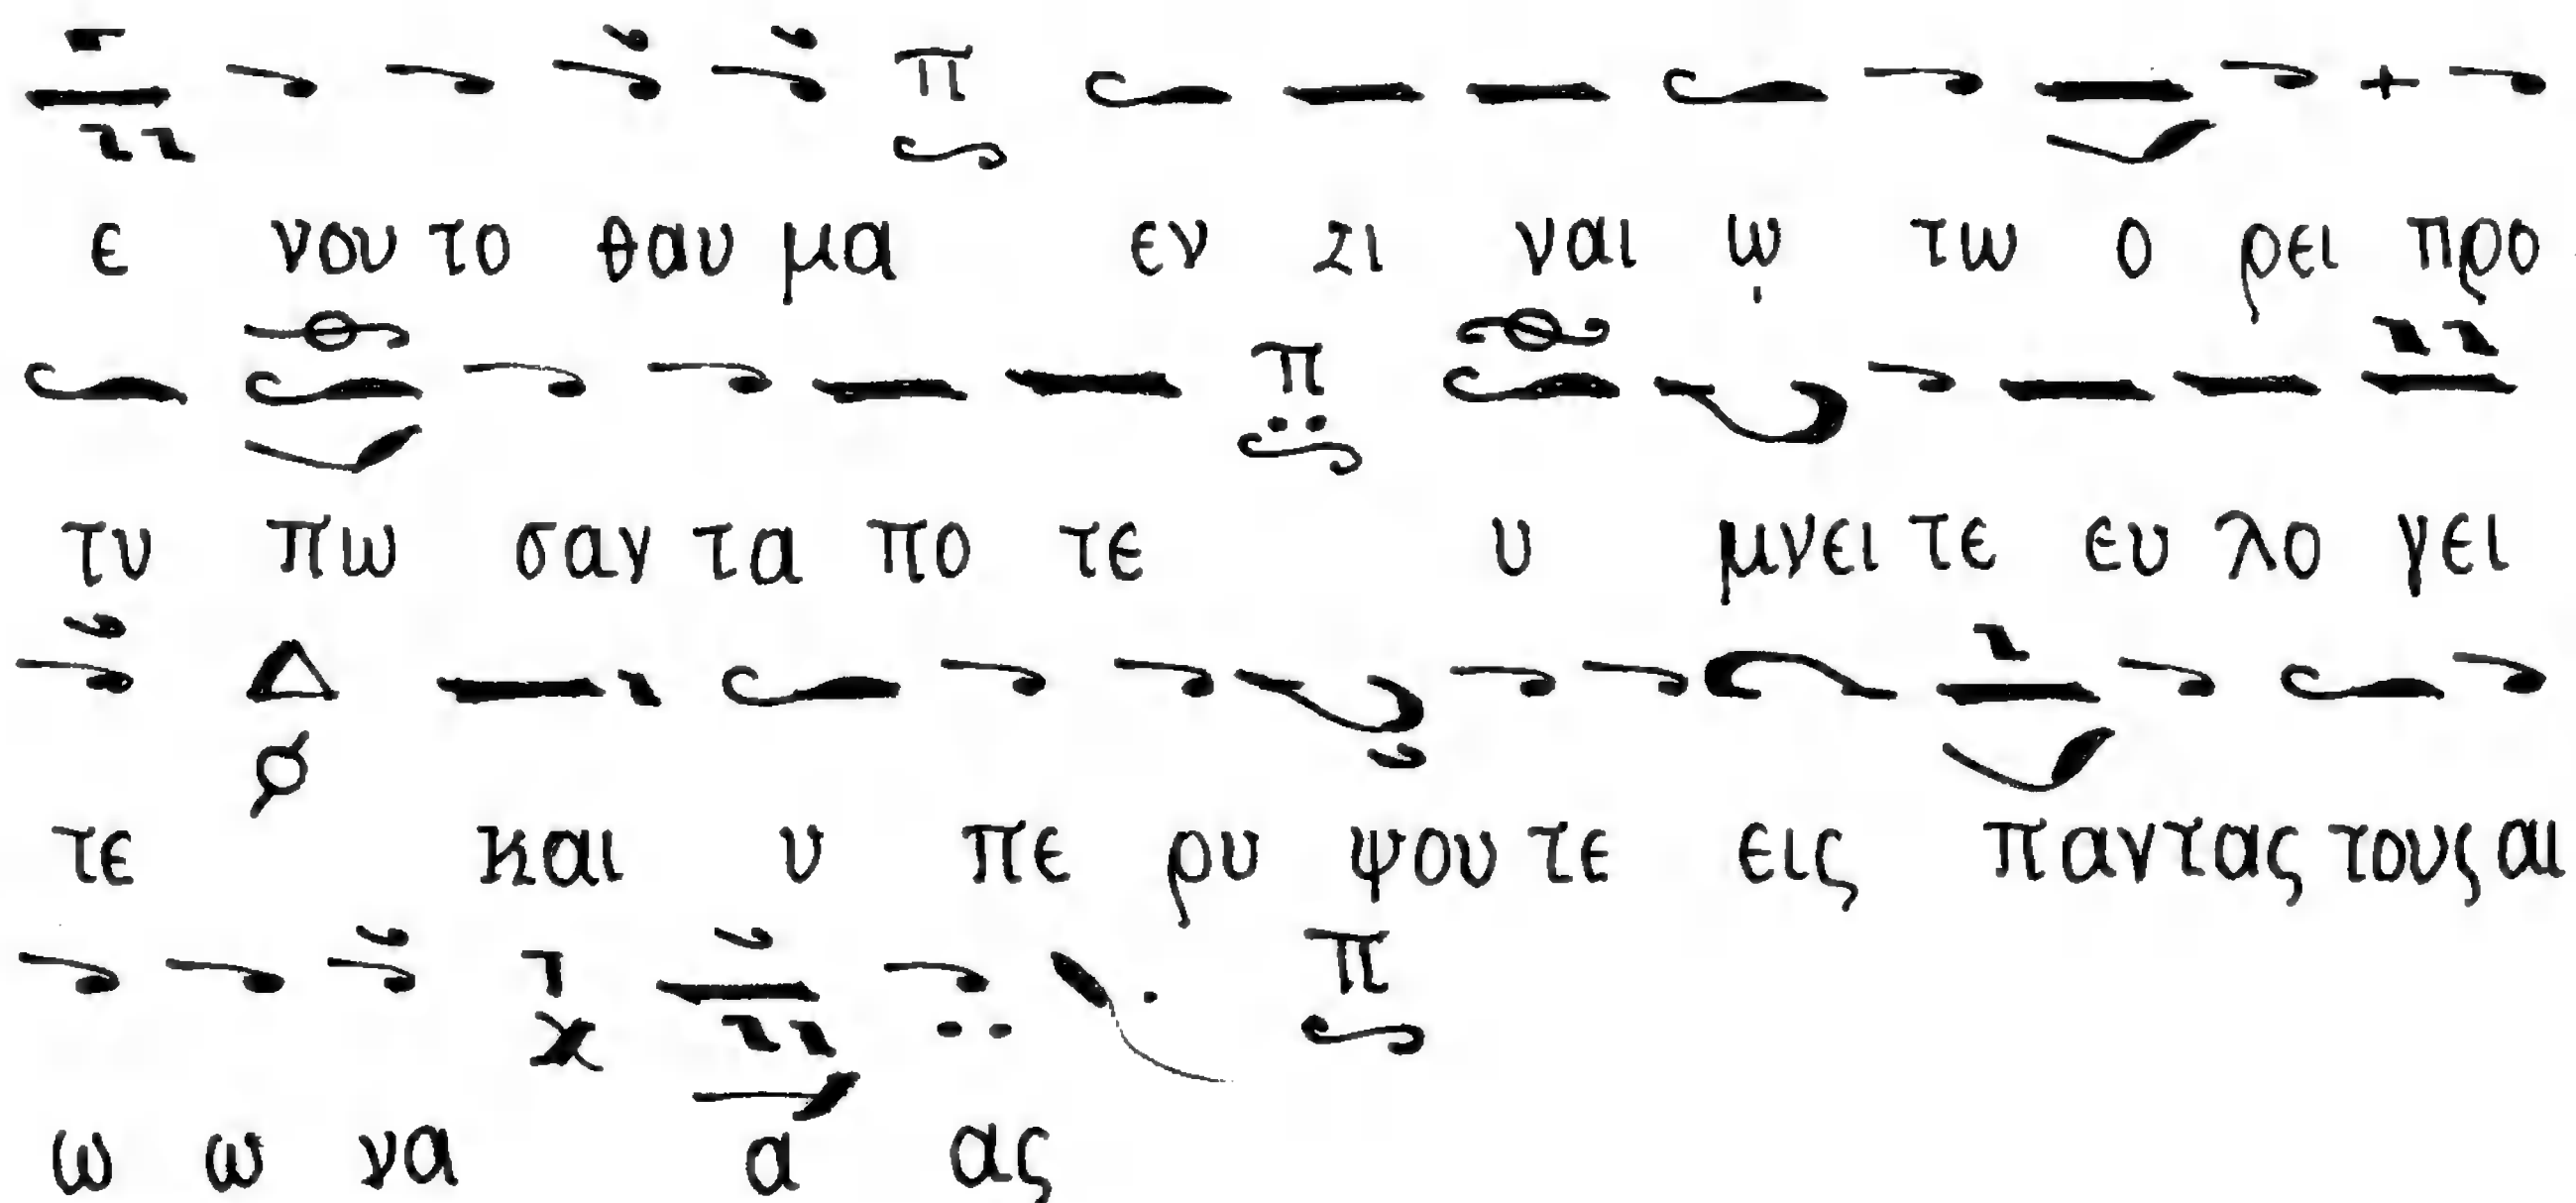 ε νου το θαυ μα εν σι ναι ω τω ο ρει προ
τυ πω σαν τα πο τε υ μνει τε ευ λο γει
τε και υ πε ρυ ψου τε εις παντας τους αι
ω ω να α ας